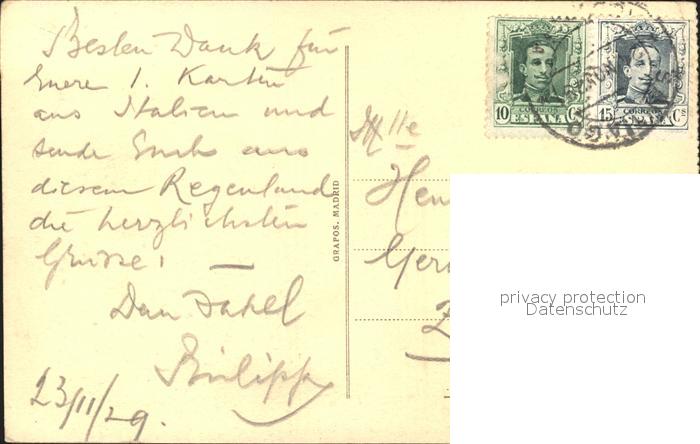 Besten Dank für
Euere l. Karten
aus Italien und
sende Euch aus
diesem Regenland
die herzlichsten
Grüsse!
Philipp
23/11/29.
GRAFOS. MADRID
Mlle
10 Cs
CORREOS
ESPAÑA
15 Cs
CORREOS
ESPAÑA
privacy protection
Datenschutz